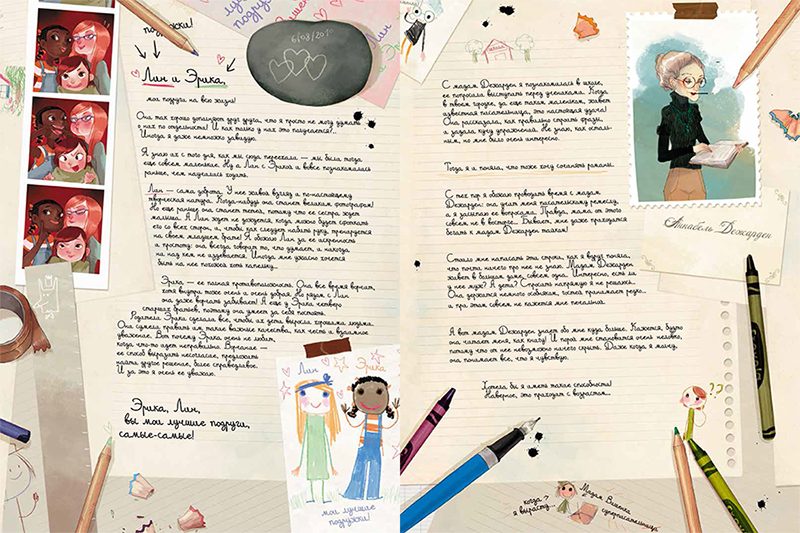 подружки!
6/03/20
Лин и Эрика,
мои подруги на всю жизнь!
Она так хорошо дополняют друг друга, что я просто не могу думать
о них по отдельности! И как только у них это получается?..
Иногда я даже немножко завидую.
Я знаю их с того дня, как мы сюда переехали – мы были тогда
еще совсем маленькие. Ну а Лин с Эрикой и вовсе познакомились
раньше, чем научились ходить.
Лин – сама доброта. У неё живой взгляд и по-настоящему
творческая натура. Когда-нибудь она станет великим фотографом!
Но еще раньше она станет тетей, потому что ее сестра ждет
малыша. А Лин ждет не дождется, когда можно будет сфоткать
его со всех сторон, и, чтобы как следует набить руку, тренируется
на своем младшем брате! Я обожаю Лин за ее искренность
и простоту: она всегда говорит то, что думает, и никогда
ни над кем не издевается. Иногда мне ужасно хочется
быть на нее похожей хоть капельку...
Эрика – ее полная противоположность. Она все время ворчит,
хотя внутри тоже очень и очень добрая. Но рядом с Лин
она даже ворчать забывает! А еще у Эрики четверо
старших братьев, поэтому она умеет за себя постоять.
Родители Эрики сделали все, чтобы их дети выросли хорошими людьми.
Они сумели привить им такие важные качества, как честь и взаимное
уважение. Вот почему Эрика очень не любит,
когда что-то идет неправильно. Ворчание –
ее способ выразить несогласие, предложить
найти другое решение, более справедливое.
И за это я очень ее уважаю.
Эрика, Лин,
вы мои лучшие подруги,
самые-самые!
Лин
Эрика
мои лучшие
подружки!
С мадам Дежарден я познакомилась в школе,
ее попросили выступить перед учениками. Когда
в твоем городке, да еще таком маленьком, живет
известная писательница, это настоящая удача!
Она рассказала, как правильно строить фразы,
и задала кучу упражнений. Не знаю, как осталь-
ным, но мне было очень интересно.
Тогда я и поняла, что тоже хочу сочинять романы.
С тех пор я обожаю проводить время с мадам
Дежарден: она учит меня писательскому ремеслу,
а я засыпаю ее вопросами. Правда, мама от этого
совсем не в восторге... Бывает, мне даже приходится
бегать к мадам Дежарден тайком!
Стоило мне написать эти строки, как я вдруг поняла,
что почти ничего про нее не знаю. Мадам Дежарден
живет в большом доме, совсем одна. Интересно, есть ли
у нее муж? А дети? Спросить напрямую я не решаюсь...
Она держится немного особняком, гостей принимает редко...
и при этом совсем не кажется мне печальной.
А вот мадам Дежарден знает обо мне куда больше. Кажется, будто
она читает меня, как книгу! И порой мне становится очень неловко,
потому что от нее невозможно ничего скрыть. Даже когда я молчу,
она понимает все, что я чувствую.
Хотела бы я иметь такие способности!
Наверное, это приходит с возрастом...
Аннабель Дежарден
??
когда
я вырасту...
Мадам Вишенка
суперписательница